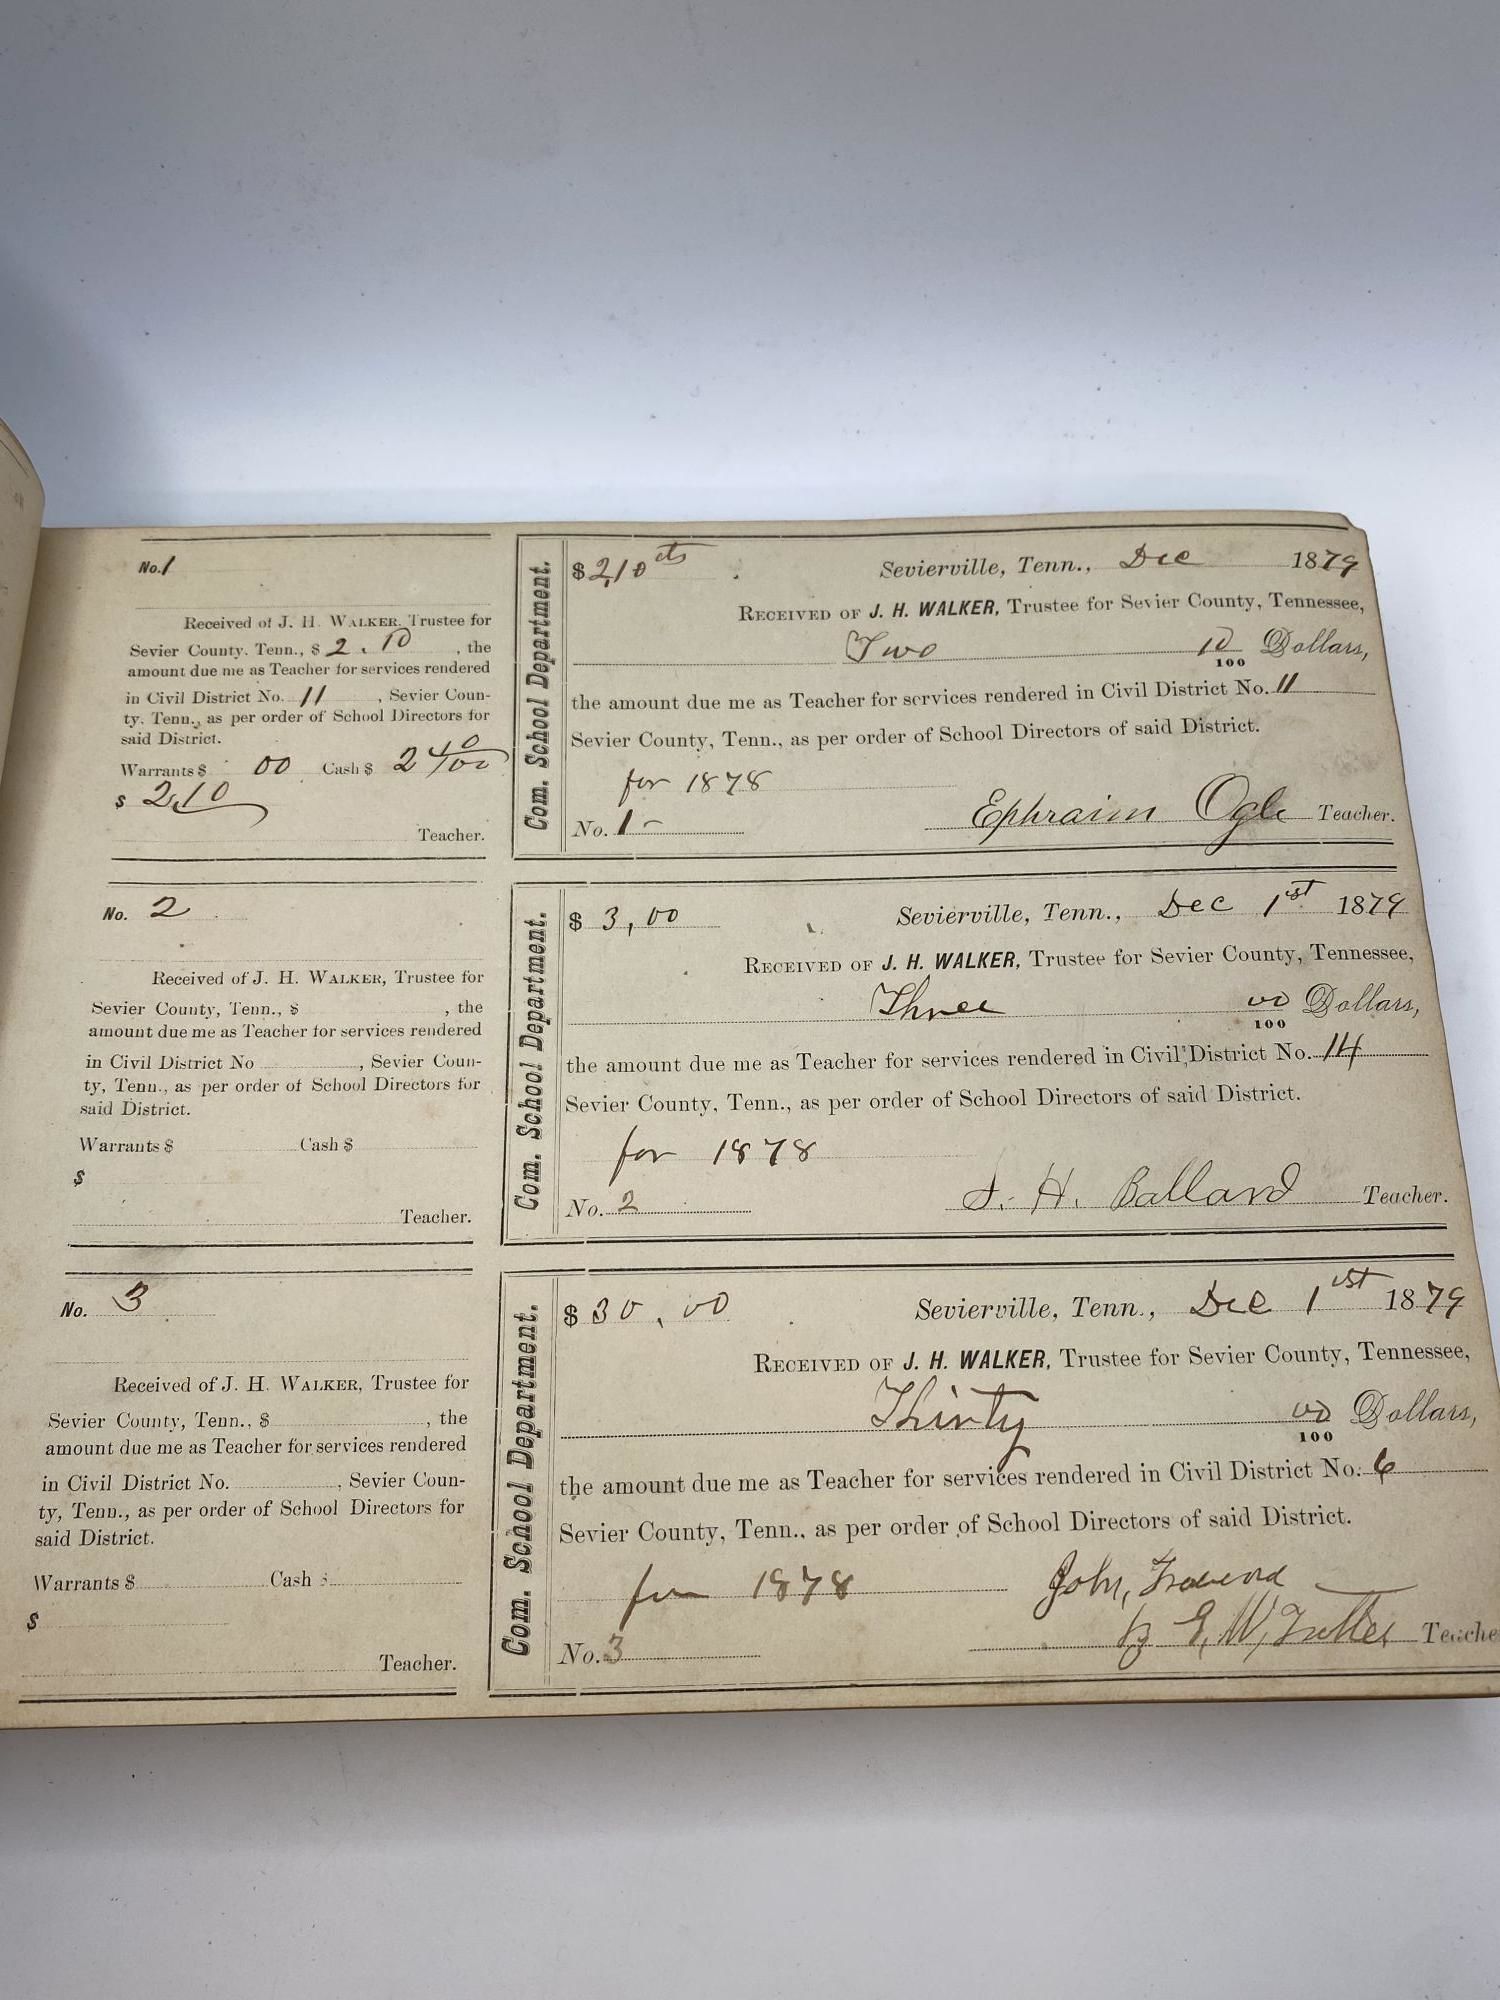 No. 1
Received of J. H. WALKER, Trustee for
Sevier County, Tenn., $ 2.10, the
amount due me as Teacher for services rendered
in Civil District No. 11, Sevier Coun-
ty, Tenn., as per order of School Directors for
said District.
Warrants $ 00 Cash $
$ 2,10
Teacher.
Com. School Department.
$ 2,10 cts Sevierville, Tenn., Dec 1879
RECEIVED OF J. H. WALKER, Trustee for Sevier County, Tennessee,
Two 10/100 Dollars,
the amount due me as Teacher for services rendered in Civil District No. 11
Sevier County, Tenn., as per order of School Directors of said District.
for 1878
No. 1- Ephraim Ogle Teacher.
No. 2
Received of J. H. WALKER, Trustee for
Sevier County, Tenn., $ , the
amount due me as Teacher for services rendered
in Civil District No , Sevier Coun-
ty, Tenn., as per order of School Directors for
said District.
Warrants $ Cash $
$
Teacher.
Com. School Department.
$ 3,00 Sevierville, Tenn., Dec 1st 1879
RECEIVED OF J. H. WALKER, Trustee for Sevier County, Tennessee,
Three 00/100 Dollars,
the amount due me as Teacher for services rendered in Civil District No. 14
Sevier County, Tenn., as per order of School Directors of said District.
for 1878
No. 2 H. Ballard Teacher.
No. 3
Received of J. H. WALKER, Trustee for
Sevier County, Tenn., $ , the
amount due me as Teacher for services rendered
in Civil District No. , Sevier Coun-
ty, Tenn., as per order of School Directors for
said District.
Warrants $ Cash $
$
Teacher.
Com. School Department.
$ 30,00 Sevierville, Tenn., Dec 1st 1879
RECEIVED OF J. H. WALKER, Trustee for Sevier County, Tennessee,
Thirty 00/100 Dollars,
the amount due me as Teacher for services rendered in Civil District No. 6
Sevier County, Tenn., as per order of School Directors of said District.
for 1878 John,
No. 3 E. W. Teache